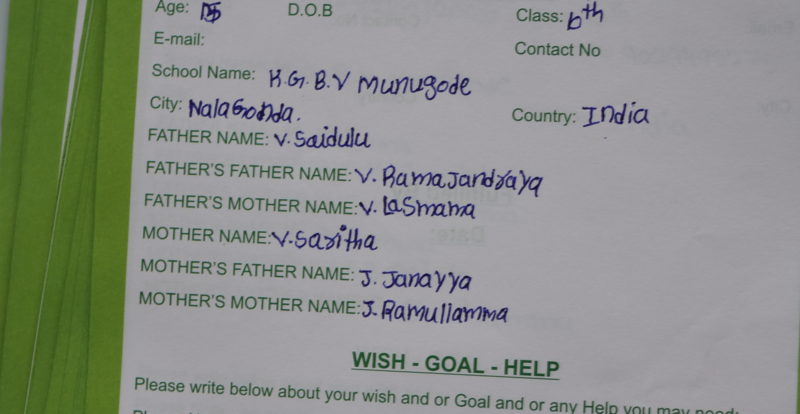 Age: D.O.B Class: 6th
E-mail: Contact No
School Name: K.G.B.V Munugode
City: NalaGonda. Country: India
FATHER NAME: V. Saidulu
FATHER'S FATHER NAME: V. Ramajandraya
FATHER'S MOTHER NAME: V. LaSmama
MOTHER NAME: V. Saritha
MOTHER'S FATHER NAME: J. Janayya
MOTHER'S MOTHER NAME: J. Ramullamma
WISH - GOAL - HELP
Please write below about your wish and or Goal and or any Help you may need: